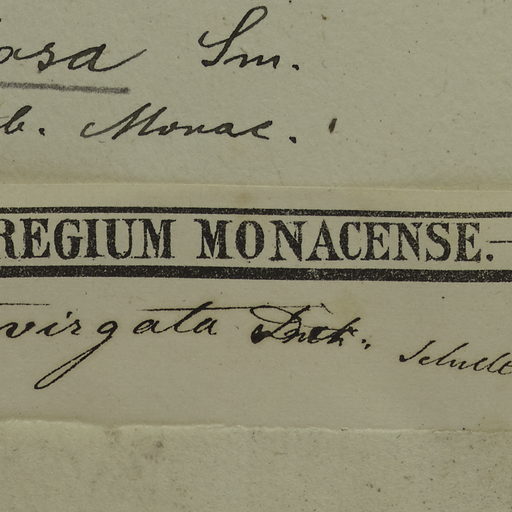 osa Sm.
b. Monac.
REGIUM MONACENSE.—
virgata